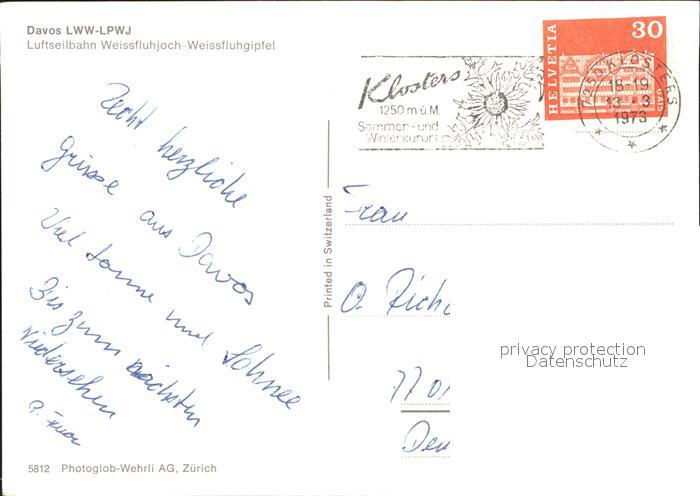 Davos LWW-LPWJ
Luftseilbahn Weissfluhjoch-Weissfluhgipfel
HELVETIA
30
Klosters
1250 m ü.M.
Sommer- und
Winterkurort
7250 KLOSTERS
18-19
13.-3.
1973
Recht herzliche
Grüsse aus Davos
Viel Sonne und Schnee
Bis zum nächsten
Wiedersehen
Printed in Switzerland
Frau
O. Rich
privacy protection
Datenschutz
5812 Photoglob-Wehrli AG, Zürich